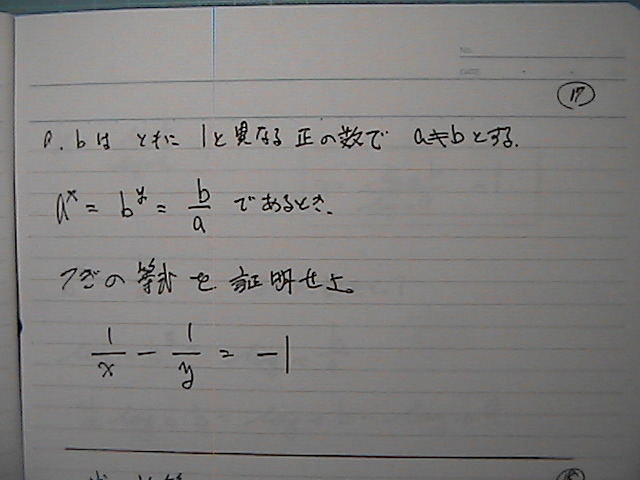 No.
DATE
17
a, bはともに1と異なる正の数で a≠bとする.
a^x = b^y = b/a であるとき.
つぎの等式を証明せよ。
1/x - 1/y = -1